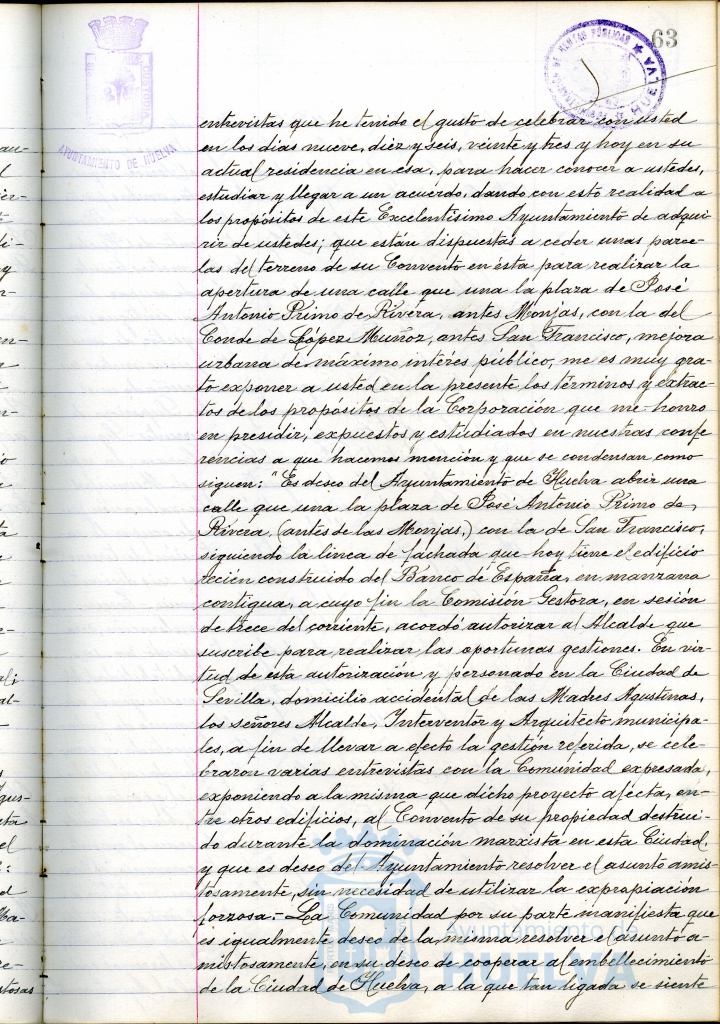 63
AYUNTAMIENTO DE HUELVA
entrevistas que he tenido el gusto de celebrar con usted
en los dias nueve, diez y seis, veinte y tres y hoy en su
actual residencia en esa, para hacer conocer a ustedes,
estudiar y llegar a un acuerdo, dando con esto realidad a
los propósitos de este Excelentísimo Ayuntamiento de adqui-
rir de ustedes; que están dispuestas a ceder unas parce-
las del terreno de su Convento en ésta para realizar la
apertura de una calle que una la plaza de José
Antonio Primo de Rivera, antes Monjas, con la del
Conde de López Muñoz, antes San Francisco, mejora
urbana de máximo interés público, me es muy gra-
to exponer a usted en la presente los términos y extrac-
tos de los propósitos de la Corporación que me honro
en presidir, expuestos y estudiados en nuestras confe
rencias a que hacemos mención y que se condensan como
siguen: "Es deseo del Ayuntamiento de Huelva abrir una
calle que una la plaza de José Antonio Primo de
Rivera, (antes de las Monjas,) con la de San Francisco,
siguiendo la linea de fachada que hoy tiene el edificio
recién construido del Banco de España, en manzana
contigua, a cuyo fin la Comisión Gestora, en sesión
de trece del corriente, acordó autorizar al Alcalde que
suscribe para realizar las oportunas gestiones. En vir-
tud de esta autorización y personado en la Ciudad de
Sevilla, domicilio accidental de las Madres Agustinas,
los señores Alcalde, Interventor y Arquitecto municipa-
les, a fin de llevar a efecto la gestión referida, se cele-
braron varias entrevistas con la Comunidad expresada,
exponiendo a la misma que dicho proyecto afecta, en-
tre otros edificios, al Convento de su propiedad destrui-
do durante la dominación marxista en esta Ciudad,
y que es deseo del Ayuntamiento resolver el asunto amis-
tosamente, sin necesidad de utilizar la expropiación
forzosa.- La Comunidad por su parte manifiesta que
es igualmente deseo de la misma resolver el asunto a-
mistosamente, en su deseo de cooperar al embellecimiento
de la Ciudad de Huelva, a la que tan ligada se siente
Ayuntamiento de
HUELVA